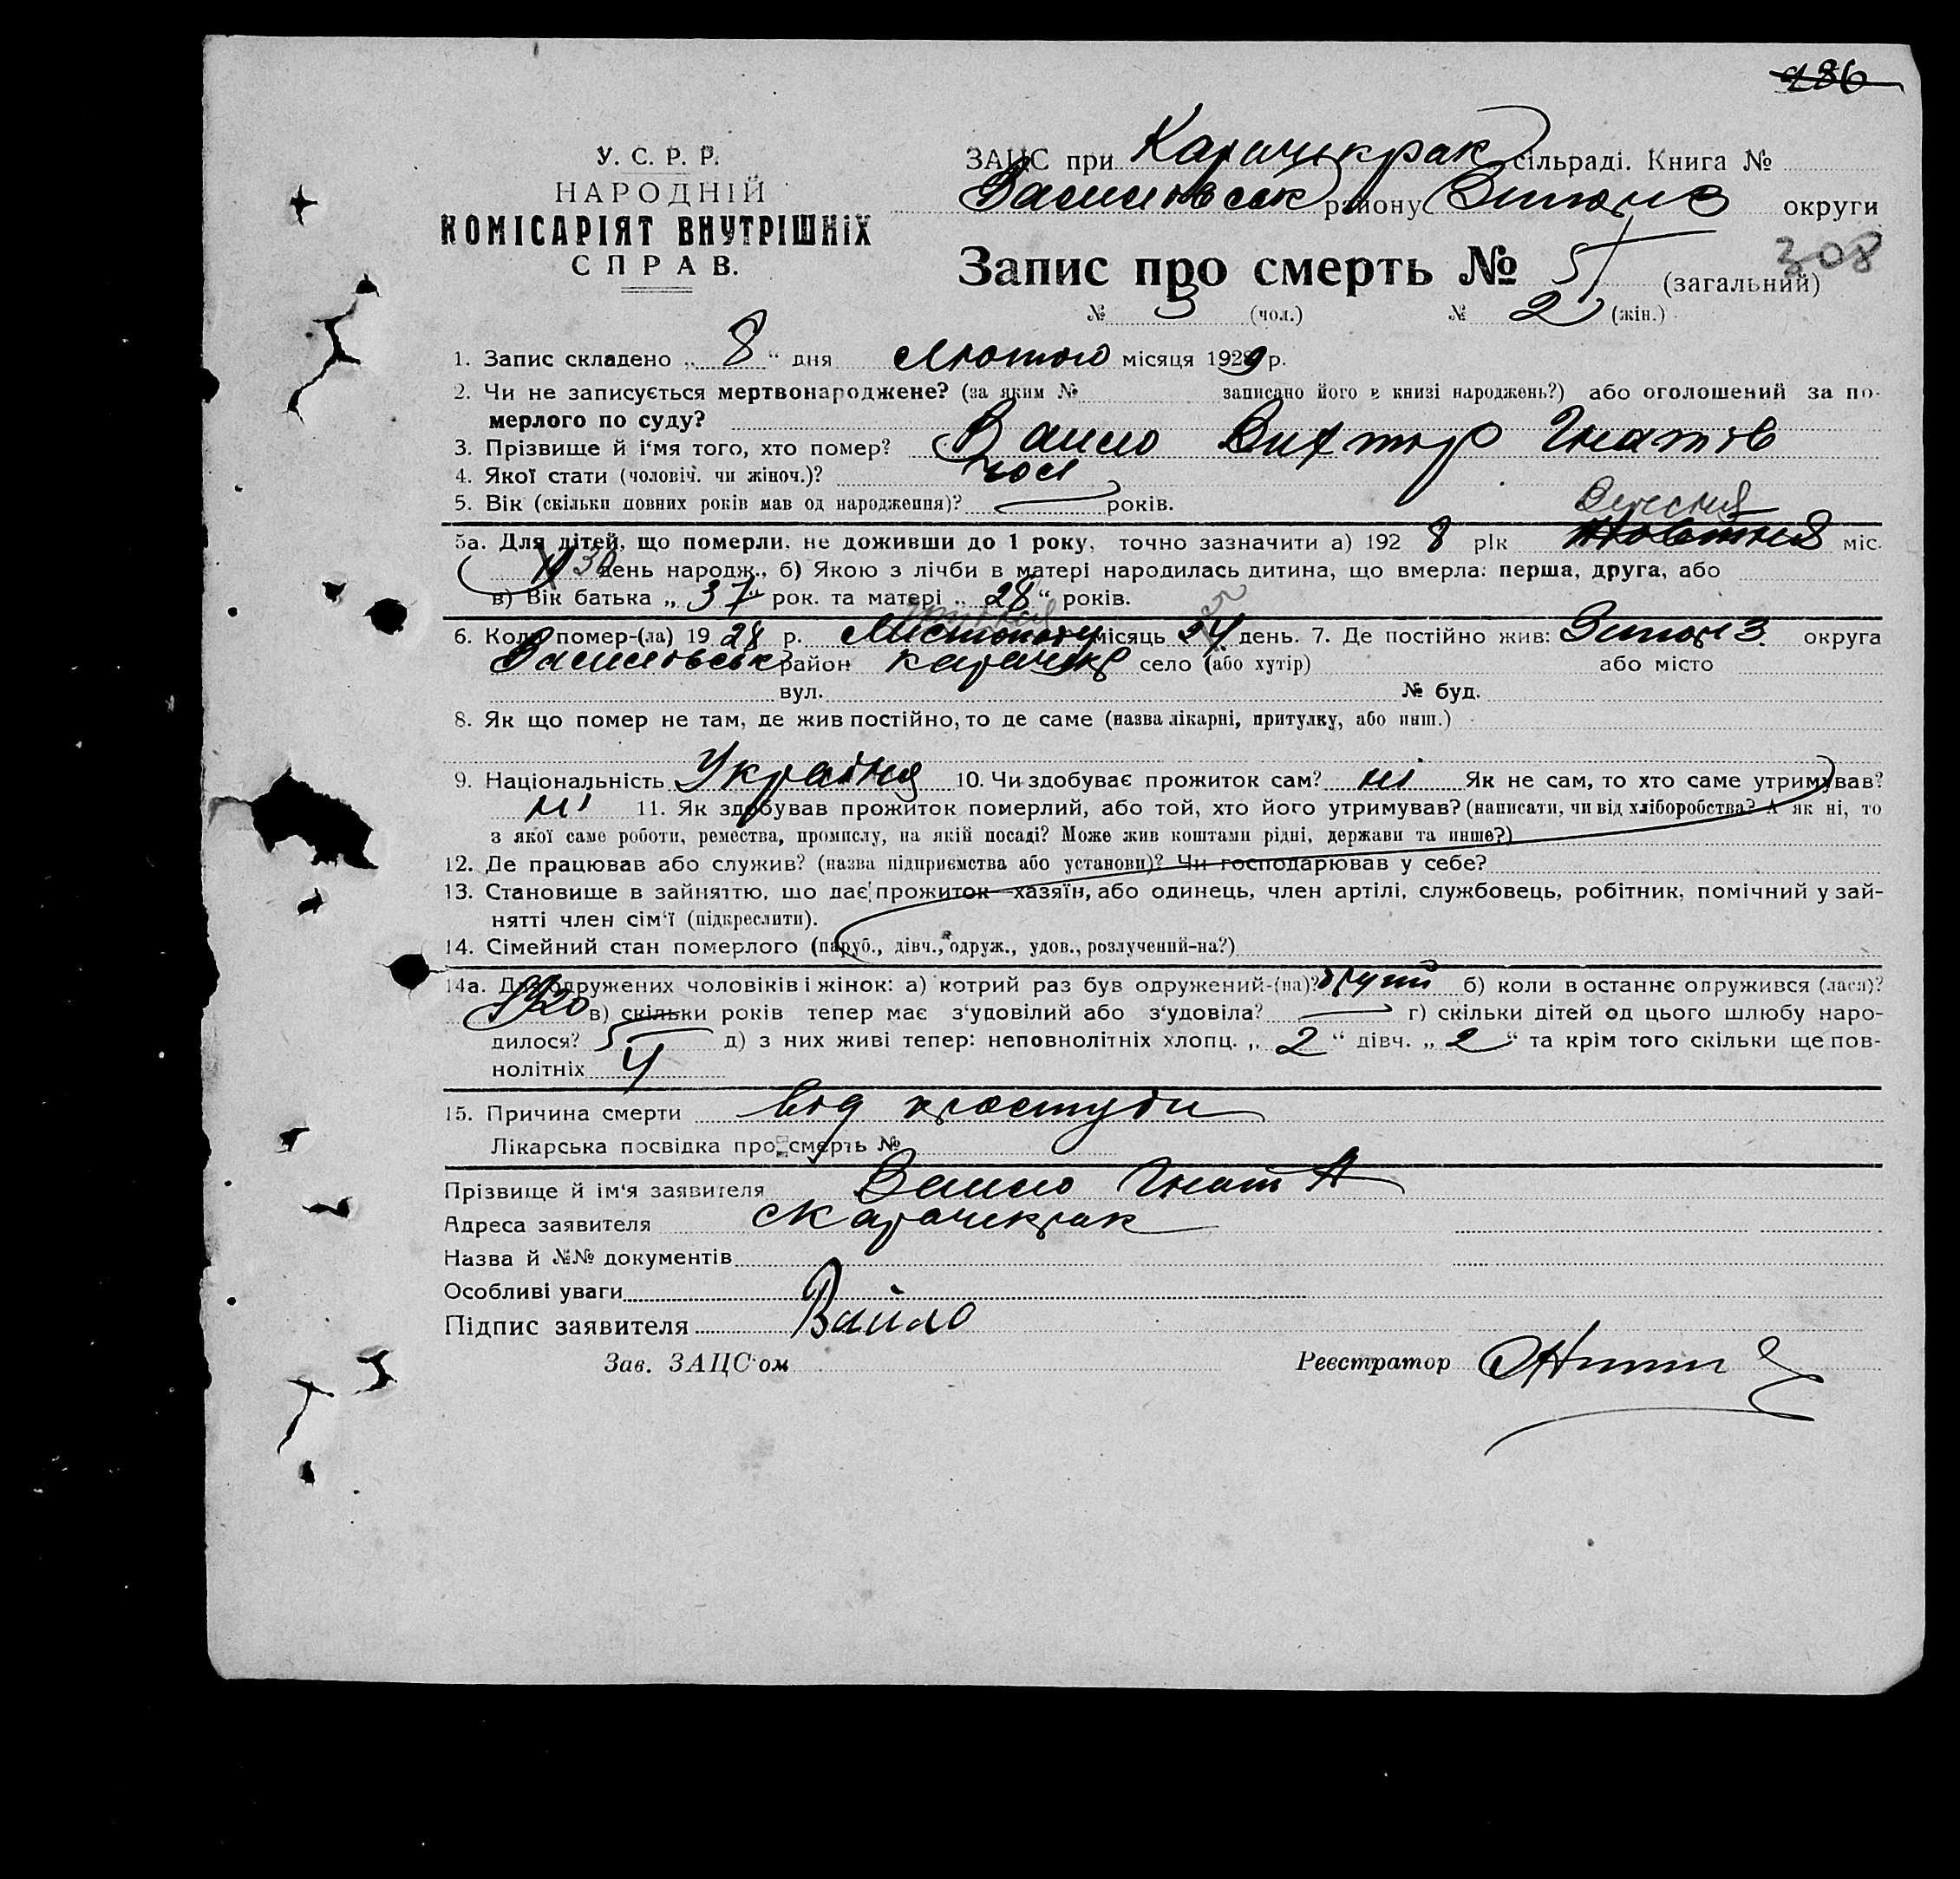 286
У. С. Р. Р.
НАРОДНІЙ
КОМІСАРІЯТ ВНУТРІШНІХ
СПРАВ.
ЗАЦС при Карачикрак сільраді. Книга №
Василівськ району округи
Запис про смерть № 5 (загальний) 308
№ 3 (чол.) № 2 (жін.)
1. Запис складено „ 8 “ дня Лютого місяця 1929 р.
2. Чи не записується мертвонароджене? (за яким № записано його в книзі народжень?) або оголошений за по-
мерлого по суду?
3. Прізвище й і‘мя того, хто помер? Вайло Виктор Гнатів
4. Якої стати (чоловіч. чи жіноч.)? чол
5. Вік (скільки повних років мав од народження)? років.
Вересня
5а. Для дітей, що померли, не доживши до 1 року, точно зазначити а) 192 8 рік Жовтня міс.
30 день народж., б) Якою з лічби в матері народилась дитина, що вмерла: перша, друга, або
в) Вік батька „ 37 “ рок. та матері „ 28 “ років.
6. Коли помер-(ла) 19 28 р. Листопаду місяць 24 день. 7. Де постійно жив: округа
Василівськ район село (або хутір) або місто
вул. № буд.
8. Як що помер не там, де жив постійно, то де саме (назва лікарні, притулку, або инш.)
9. Національність Україня 10. Чи здобуває прожиток сам? ні Як не сам, то хто саме утримував?
ні 11. Як здобував прожиток померлий, або той, хто його утримував? (написати, чи від хліборобства? А як ні, то
з якої саме роботи, ремества, промислу, на якій посаді? Може жив коштами рідні, держави та инше?)
12. Де працював або служив? (назва підприємства або установи)? Чи господарював у себе?
13. Становище в зайняттю, що дає прожиток—хазяїн, або одинець, член артілі, службовець, робітник, помічний у зай-
нятті член сім‘ї (підкреслити).
14. Сімейний стан померлого (паруб., дівч., одруж., удов., розлучений-на?)
14а. Для одружених чоловіків і жінок: а) котрий раз був одружений-(на)? другий б) коли в останнє одружився (лася)?
1920 в) скільки років тепер має з‘удовілий або з‘удовіла? г) скільки дітей од цього шлюбу наро-
дилося? 5 д) з них живі тепер: неповнолітніх хлопц. „ 2 “ дівч. „ 2 “ та крім того скільки ще пов-
нолітніх 4
15. Причина смерти від простуди
Лікарська посвідка про смерть №
Прізвище й ім‘я заявителя Вайло Гнат А
Адреса заявителя с Карачикрак
Назва й №№ документів
Особливі уваги
Підпис заявителя Вайло
Зав. ЗАЦС‘ом Реєстратор